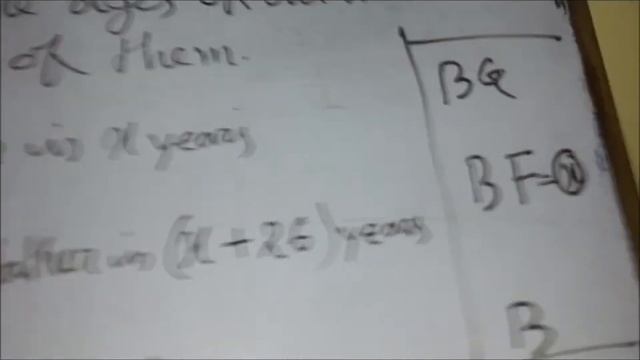 ages of
of them.
is x years
father is (x + 26) years
BG
BF = x
B